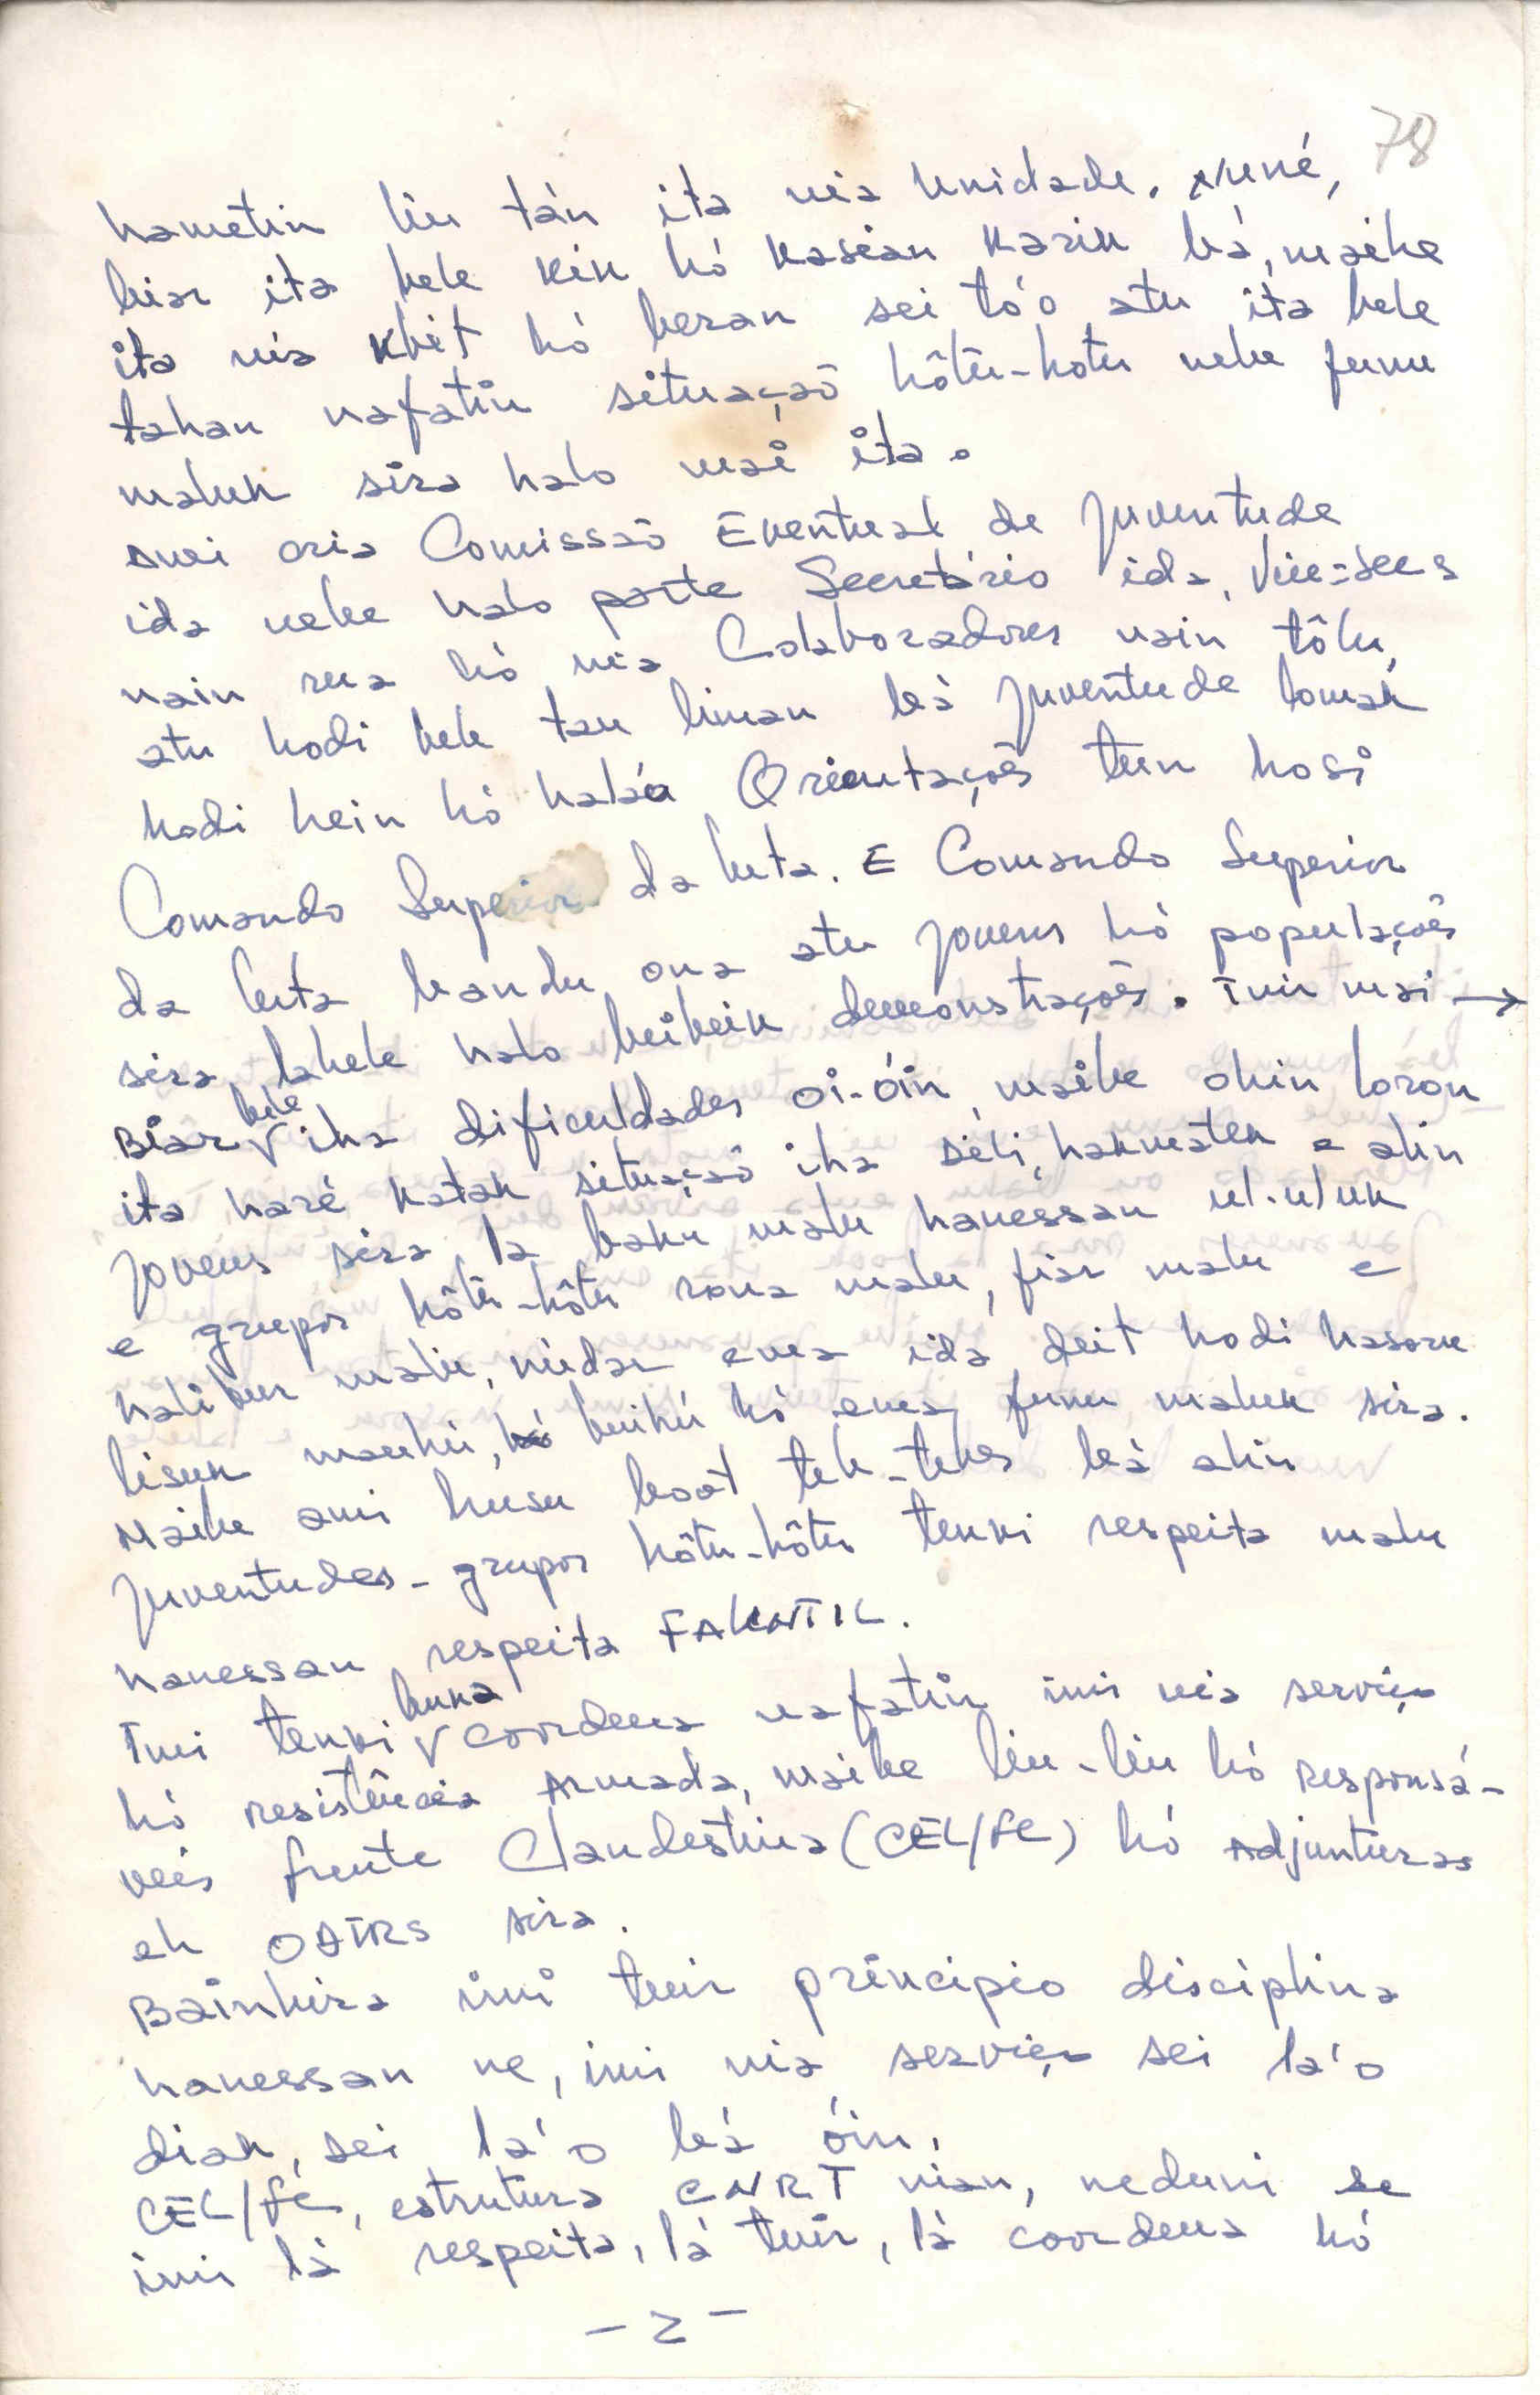 78
hametin liu tán ita nia Unidade. Nuné,
biar ita bele kik hó kasian karik bá, maibe
ita nia kbit hó beran sei tó'o atu ita bele
tahan nafatin situaçaõ hôtu-hotu nebe funu
maluk sira halo mai ita.
Ami cria Comissaõ Eventual de Juventude
ida nebe halo parte Secretário ida, Vice-Secs
nain rua hó nia Colaboradores nain tôlu,
atu hodi bele tau liman bá Juventude tomak
hodi hein hó hala'o Orientaçoēs tun hosi
Comando Superior da luta. E Comando Superior
da luta bandu ona atu jovens hó populaçoēs
sira labele halo beibeik demonstraçoēs. Tuir mai →
Biar bele iha dificuldades oi-óin, maibe ohin loron
ita haré katak situaçaõ iha séli, hakmatek e alin
jovens sira la baku malu hanéssan ul-uluk
e grupos hôtu-hôtu rona malu, fiar malu e
halibur malu, nudar ema ida deit hodi hasoru
bisuk mauhú, buihú hó ema funu maluk sira.
Maibe ami husu boot teb-tebes bá alin
juventudes-grupos hôtu-hôtu tenki respeita malu
hanessan respeita FALINTIL.
Imi tenki buka coordena nafatin imi nia serviço
hó resistência Armada, maibe liu-liu hó responsá-
veis frente Clandestina (CEL/FC) hó Adjunturas
eh OAIRS sira.
Bainhira imi tuir principio disciplina
hanessan ne, imi nia serviço sei la'o
diak, sei la'o bá óin.
CEL/FC, estrutura CNRT nian, neduni se
imi lá respeita, lá tuir, lá coordena hó
- 2 -